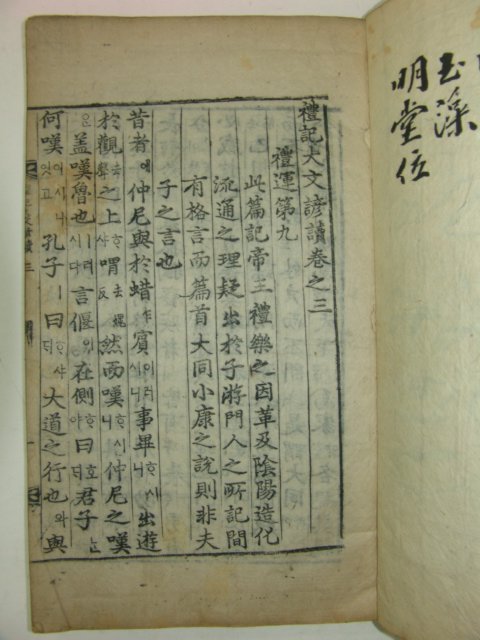 玉藻
明堂位
禮記大文諺讀卷之三
禮運第九
此篇記帝王禮樂之因革及陰陽造化
流通之理疑出於子游門人之所記間
有格言而篇首大同小康之說則非夫
子之言也
昔者애仲尼與於蜡乍賓이러시니事畢ᄒᆞ시니出遊
於觀去聲之上ᄒᆞ샤喟去媿反然而嘆ᄒᆞ시니仲尼之嘆
은盖嘆魯也ㅣ러시다言偃이在側ᄒᆞ야曰호ᄃᆡ君子ᄂᆞᆫ
何嘆이시니잇고孔子ㅣ曰ᄒᆞ샤ᄃᆡ大道之行也와與